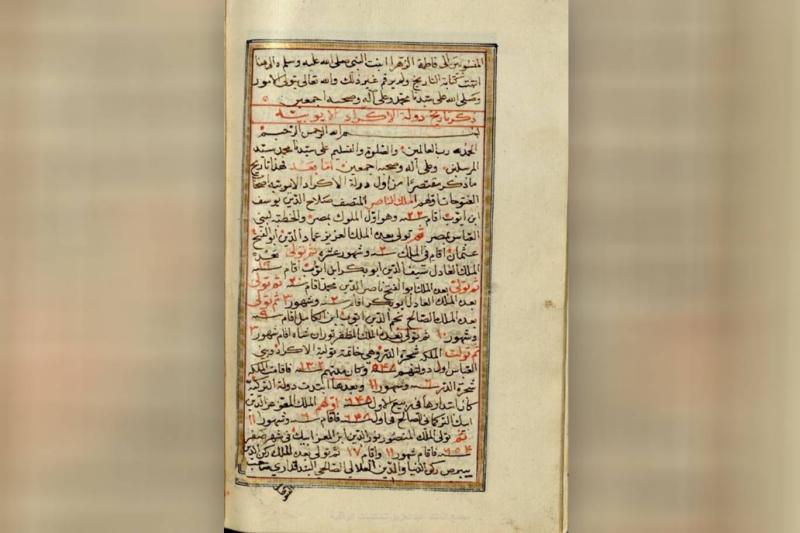 المنسوبين الى فاطمة الزهرا ابنت النبى صلى الله عليه وسلم والى هنا
انتهت كتابة التاريخ ولم يرقم غير ذلك والله تعالى يتولى الامور
وصلى الله على سيدنا محمد وعلى آله وصحبه اجمعين
ذكر تاريخ دولة الاكراد الايوبية
بسم الله الرحمن الرحيم
الحمد لله رب العالمين والصلوة والتسليم على سيدنا محمد سيد
المرسلين وعلى آله وصحبه اجمعين اما بعد فهذا تاريخ
ما ذكر مقتصرا من اول دولة الاكراد الايوبيه اصحاب
الفتوحات فاولهم الملك الناصر المنصف صلاح الدين يوسف
ابن ايوب اقام ٢٢ سنه وهو اول الملوك بمصر والخطبة لبنى
العباس بمصر ثم تولى بعده الملك العزيز عماد الدين ابو الفتح
عثمان اقام فى الملك سنه وشهور عشره ثم تولى بعده
الملك العادل سيف الدين ابو بكر ابن ايوب اقام سنه
ثم تولى بعده الملك ابو الفتح ناصر الدين محمد اقام ٢٠ ثم تولى
بعده الملك العادل ابو بكر اقام سنه ٢ وشهور ٣ ثم تولى
بعده الملك الصالح نجم الدين ايوب ابن الكامل اقام سنه ٩
وشهور ١٠ ثم تولى بعده الملك المظفر توران شاه اقام شهور ٣
ثم تولت الملكه شجرة الدر وهى خاتمة دولة الاكراد وبنى
العباس اول دولتهم ٥٤٨ وكان مدتهم سنه فاقامت الملكه
شجرة الدر سنه وشهور ١١ وبعدها ابتدت دولة التركيه
كان ابتدارها فى ربيع الاول ٦٤٨ اولهم الملك المعز عز الدين
ايبك التركمانى الصالحى فى اول ٦٤٨ فاقام سنه ٦ وشهور ١١
ثم تولى الملك المنصور نور الدين ابن المعز ايبك فى شهر صفر
٦٥٤ سنه فاقام شهور ١١ وايام ١٧ ثم تولى بعده الملك ركن الدين
بيبرص ركن الدنيا والدين العلائى الصالحى البندقدارى